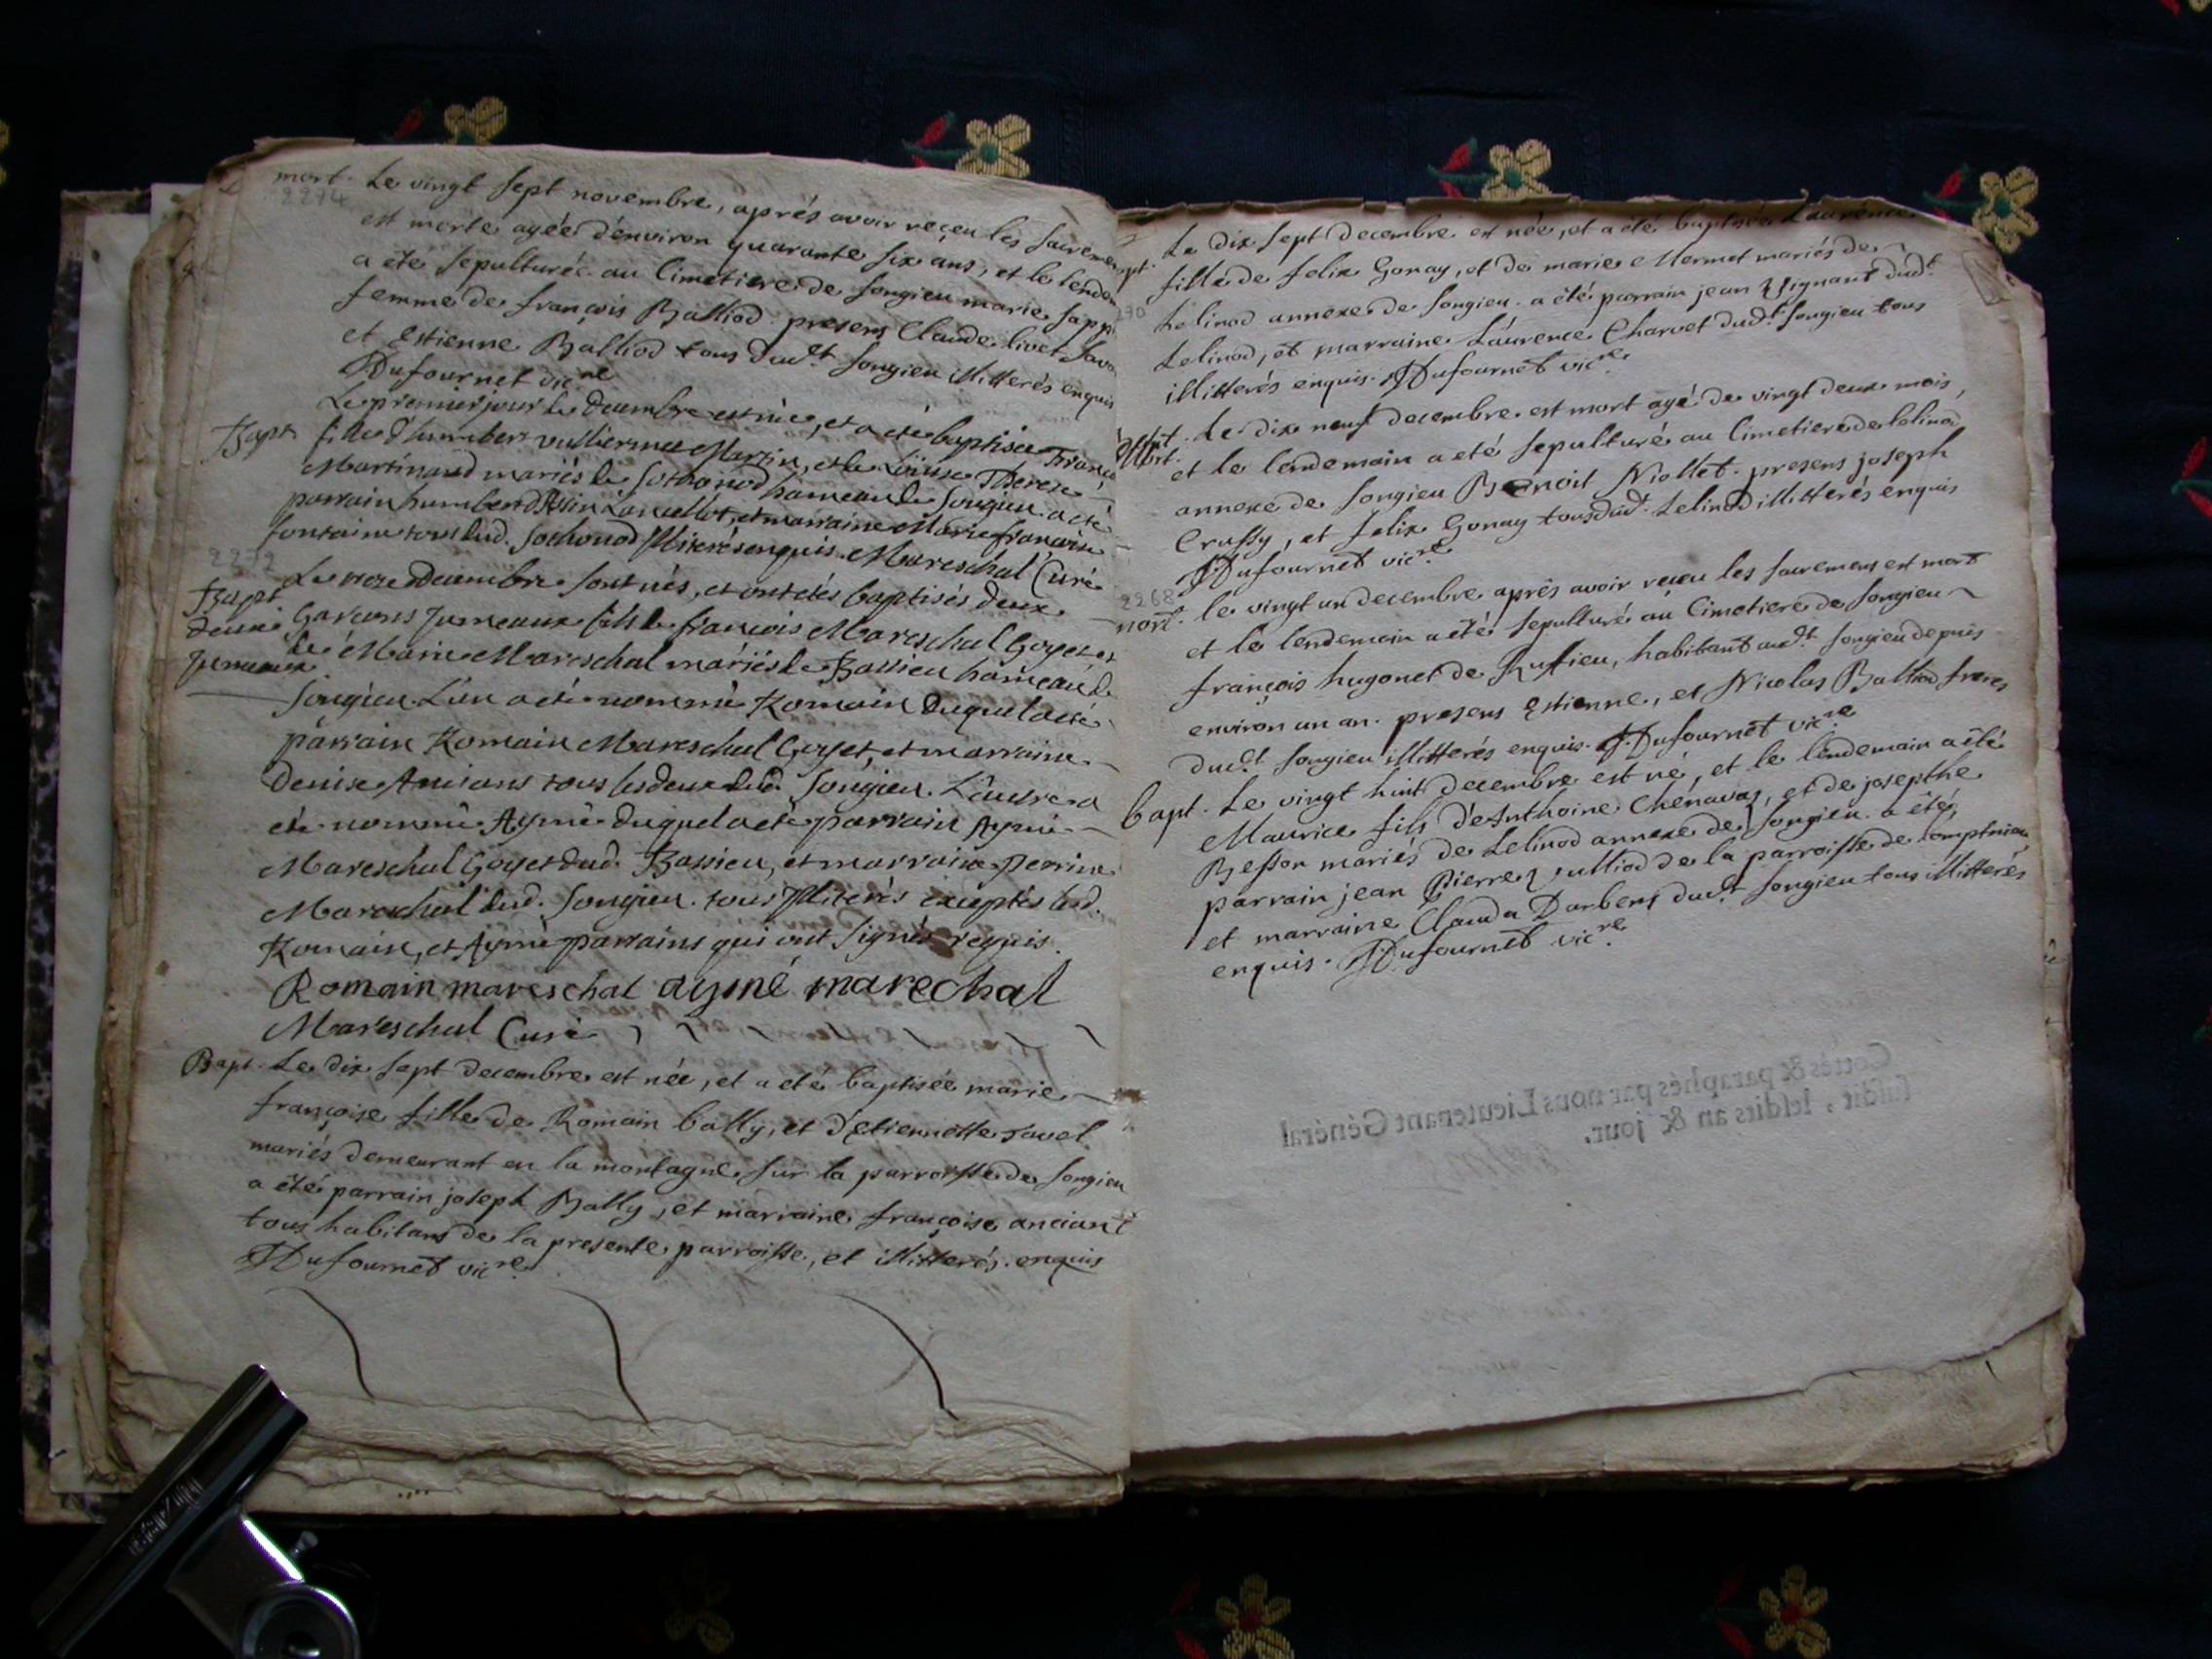 mort. Le vingt sept novembre, aprés avoir reçeu les sacremen
2274
est morte agéé d'environ quarante six ans, et le lendem
a été sepulturéé au Cimetiere de songieu marie sapp
femme de françois Balliod. presens Claude livet savo
et Estienne Balliod tous dudt songieu illitterés enquis
Dufournet vicre
Bapt. Le premier jour de decembre est née, et a été baptisée Franç
fille d'humbert vullierme Martin, et de Loüise Therese
Martinand mariés de Sothonod hameau de Songieu. a été
parrain humbert Lancellot, et marraine Marie françoise
fontaine tous dud. Sothonod illiterés enquis. Mareschal Curé
2272
Bapt Le decembre sont nés, et ont étés baptisés deux
deux Garçons Jumeaux fils de françois Mareschal Goyet et
Jumeaux de Marie Mareschal mariés de Bassieu hameau de
Songieu. L'un a été nommé Romain duquel a été
parrain Romain Mareschal Goyet, et marraine
Denise tous les deux dud. Songieu. L'autre a
été nommé Aymé duquel a été parrain Aymé
Mareschal Goyet dud. Bassieu, et marraine Perrine
Mareschal dud. Songieu. tous illiterés exceptés lesd.
Romain, et Aymé parrains qui ont signés requis.
Romain mareschal aymé marechal
Mareschal Curé
Bapt. Le dix sept decembre est née, et a été baptisée marie
françoise fille de Romain bally, et d'Etiennette ravel
mariés demeurant en la montagne sur la parroisse de songieu
a été parrain joseph Bally, et marraine françoise anciant
tous habitans de la presente parroisse, et illitterés. enquis
Dufournet vicre
pt. Le dix sept decembre est née, et a été baptisée Laurence
fille de felix Gonay, et de marie Mermet mariés de
270 Lelinod annexe de songieu. a été parrain jean Vignant dudt
Lelinod, et marraine Laurence Charvet dudt songieu tous
illitterés enquis. Dufournet vicre
Mort. Le dix neuf decembre est mort agé de vingt deux mois,
et le lendemain a eté sepulturé au Cimetiere de lelinod
annexe de songieu Benoit Niollet. presens joseph
Crussy, et felix Gonay tous dudt Lelinod illitterés enquis
Dufournet vicre
2268
mort. le vingt un decembre aprés avoir reçeu les sacremens est mort
et le lendemain a été sepulturé au Cimetiere de songieu
françois hugonet de Ruffieu, habitant audt songieu depuis
environ un an. presens Estienne, et Nicolas Balliod freres
dudt songieu illitterés enquis. Dufournet vicre
bapt. Le vingt huit decembre est né, et le lendemain a été
Maurice fils d'Anthoine Chénavaz, et de josepthe
Besson mariés de Lelinod annexe de songieu. a été
parrain jean Pierre Vulliod de la parroisse de
et marraine Clauda Darbens dudt songieu tous illitterés
enquis. Dufournet vicre
Cottés & paraphés par nous Lieutenant Général
susdit, lesdits an & jour.